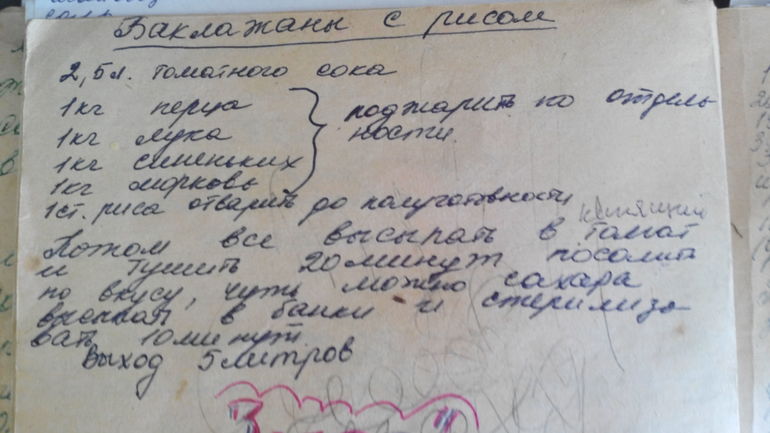 Баклажаны с рисом
2,5л. томатного сока
1кг перца
1кг лука
1кг синеньких
1кг морковь
поджарить по отдель
ности
1ст. риса отварить до полуготовности
кипящий
Потом все высыпать в томат
и тушить 20минут посолить
по вкусу, чуть можно сахара
в банки и стерилизо
вать 10минут.
Выход 5литров